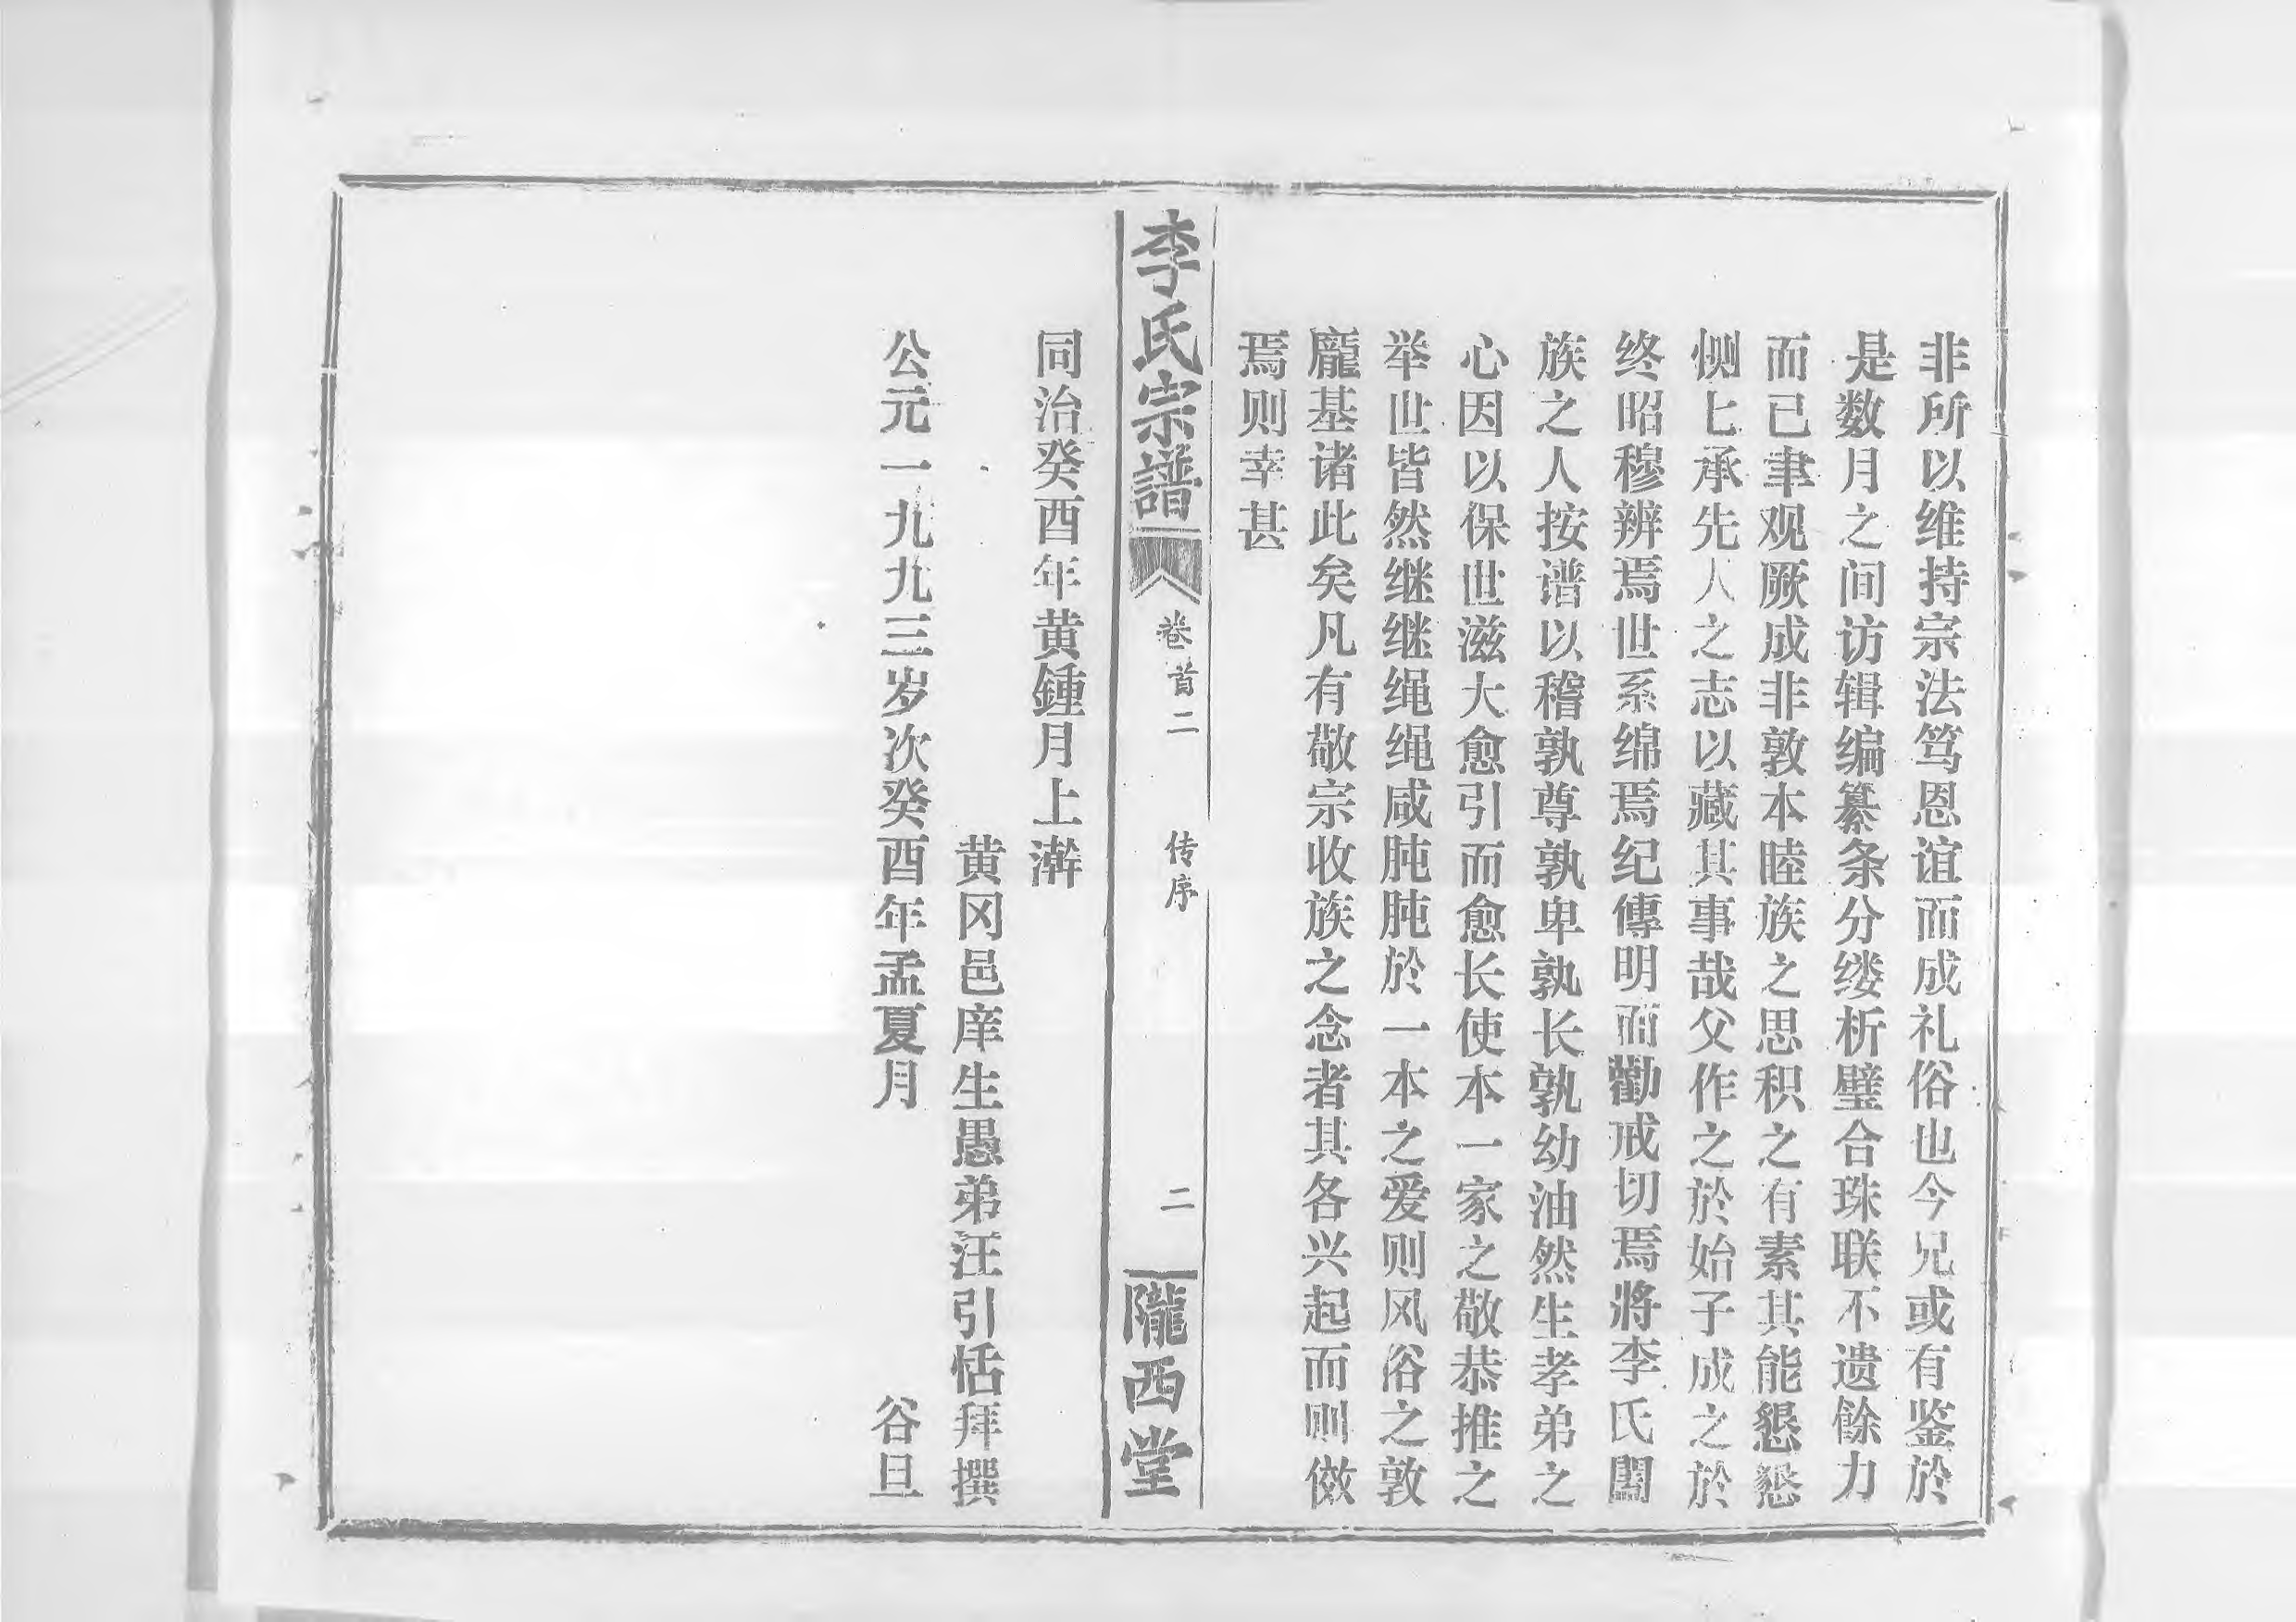 非所以维持宗法笃恩谊而成礼俗也今兄或有鉴於
是数月之间访辑编纂条分缕析璧合珠联不遗餘力
而已聿观厥成非敦本睦族之思积之有素其能懇懇
恻上承先人之志以藏其事哉父作之於始子成之於
终昭穆辨焉世系绵焉纪傳明而勸戒切焉將李氏闔
族之人按谱以稽孰尊孰卑孰长孰幼油然生孝弟之
心因以保世滋大愈引而愈长使本一家之敬恭推之
举世皆然继继绳绳咸肫肫於一本之爱则风俗之敦
龐基诸此矣凡有敬宗收族之念者其各兴起而则傚
焉则幸甚
李氏宗譜
卷首二
传序
二
隴西堂
同治癸酉年黄鍾月上澣
黄冈邑庠生愚弟汪引恬拜撰
公元一九九三岁次癸酉年孟夏月 谷旦